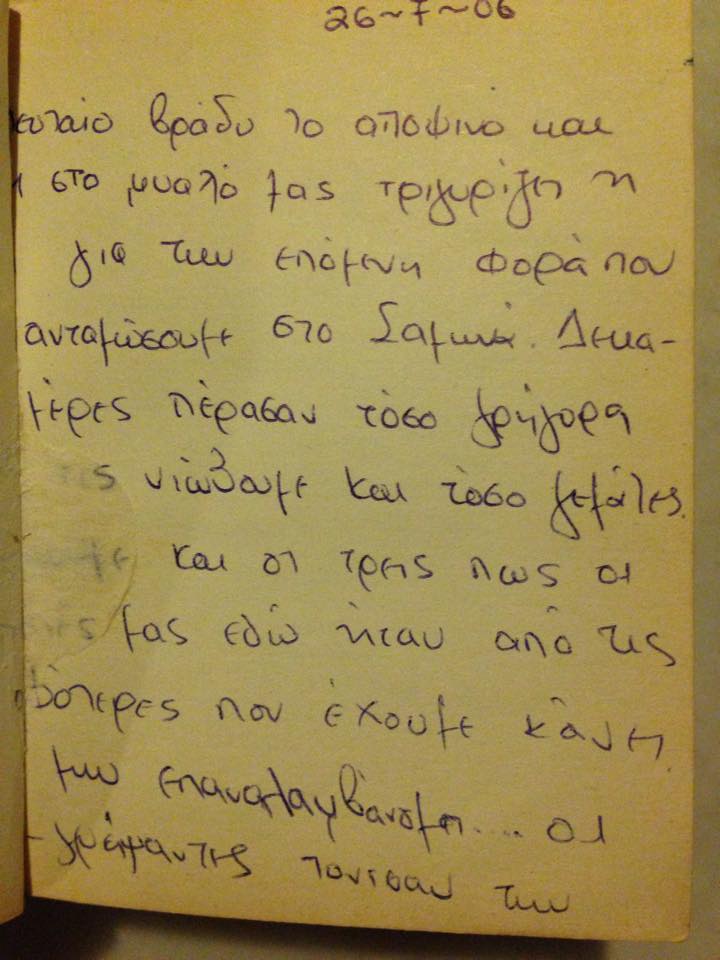 26~7~06
ευταίο βράδυ το αποψινό και
στο μυαλό μας τριγυρίζει η
για την επόμενη φορά που
ανταμώσουμε στο Δεκα-
μέρες πέρασαν τόσο γρήγορα
τις νιώθουμε και τόσο γεμάτες.
και οι τρεις πως οι
μας εδώ ήταν από τις
που έχουμε κάνει
μην επαναλαμβάνομαι.... οι
τόνισαν την